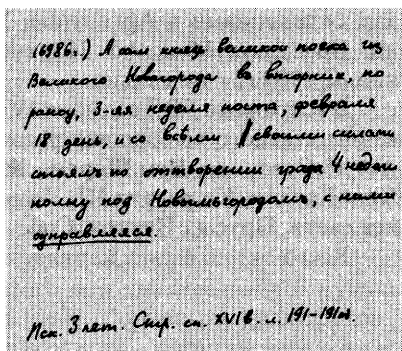 (6986г.) А сам князь великой поеха из
Великого Новагорода во вторник, по
рану, 3-ая неделя поста, февраля
18 день, и со всѣми // своими силами
стоялъ по отътворении града 4 недели
полну под Новымъгородомъ, с ними
оуправляяся.
Пск. 3 лет. Стр. сп. XVI в. л. 191–191об.